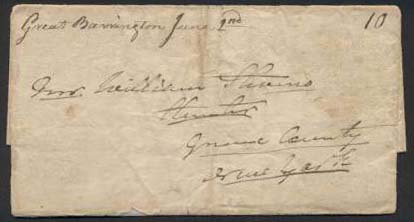 Great Barrington June 2nd 10
Mr. William Stevens
County
New York